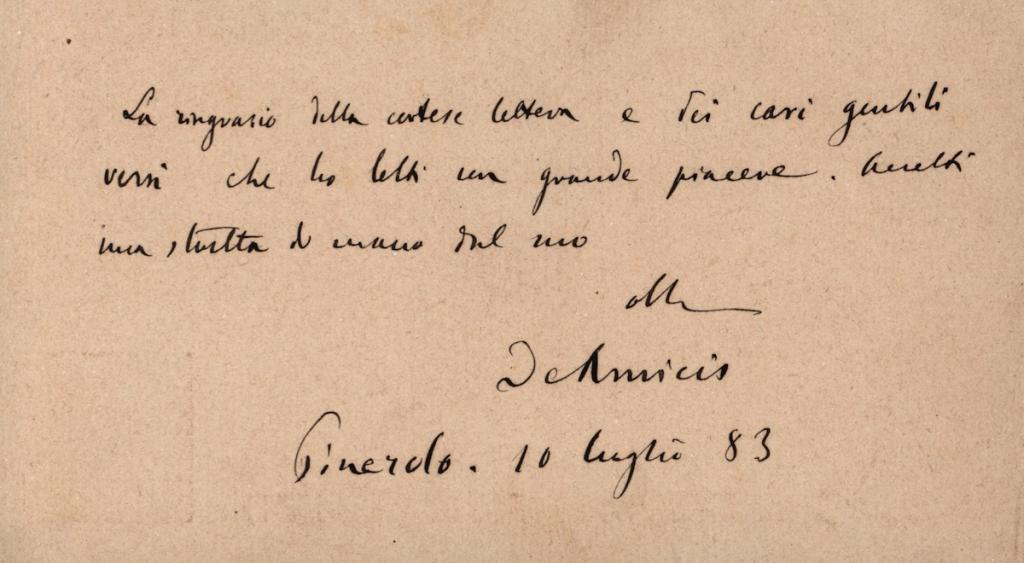 La ringrazio della cortese lettera e dei cari gentili
versi che ho letti con grande piacere. Accetti
una stretta di mano dal suo
DeAmicis
Pinerolo. 10 luglio 83